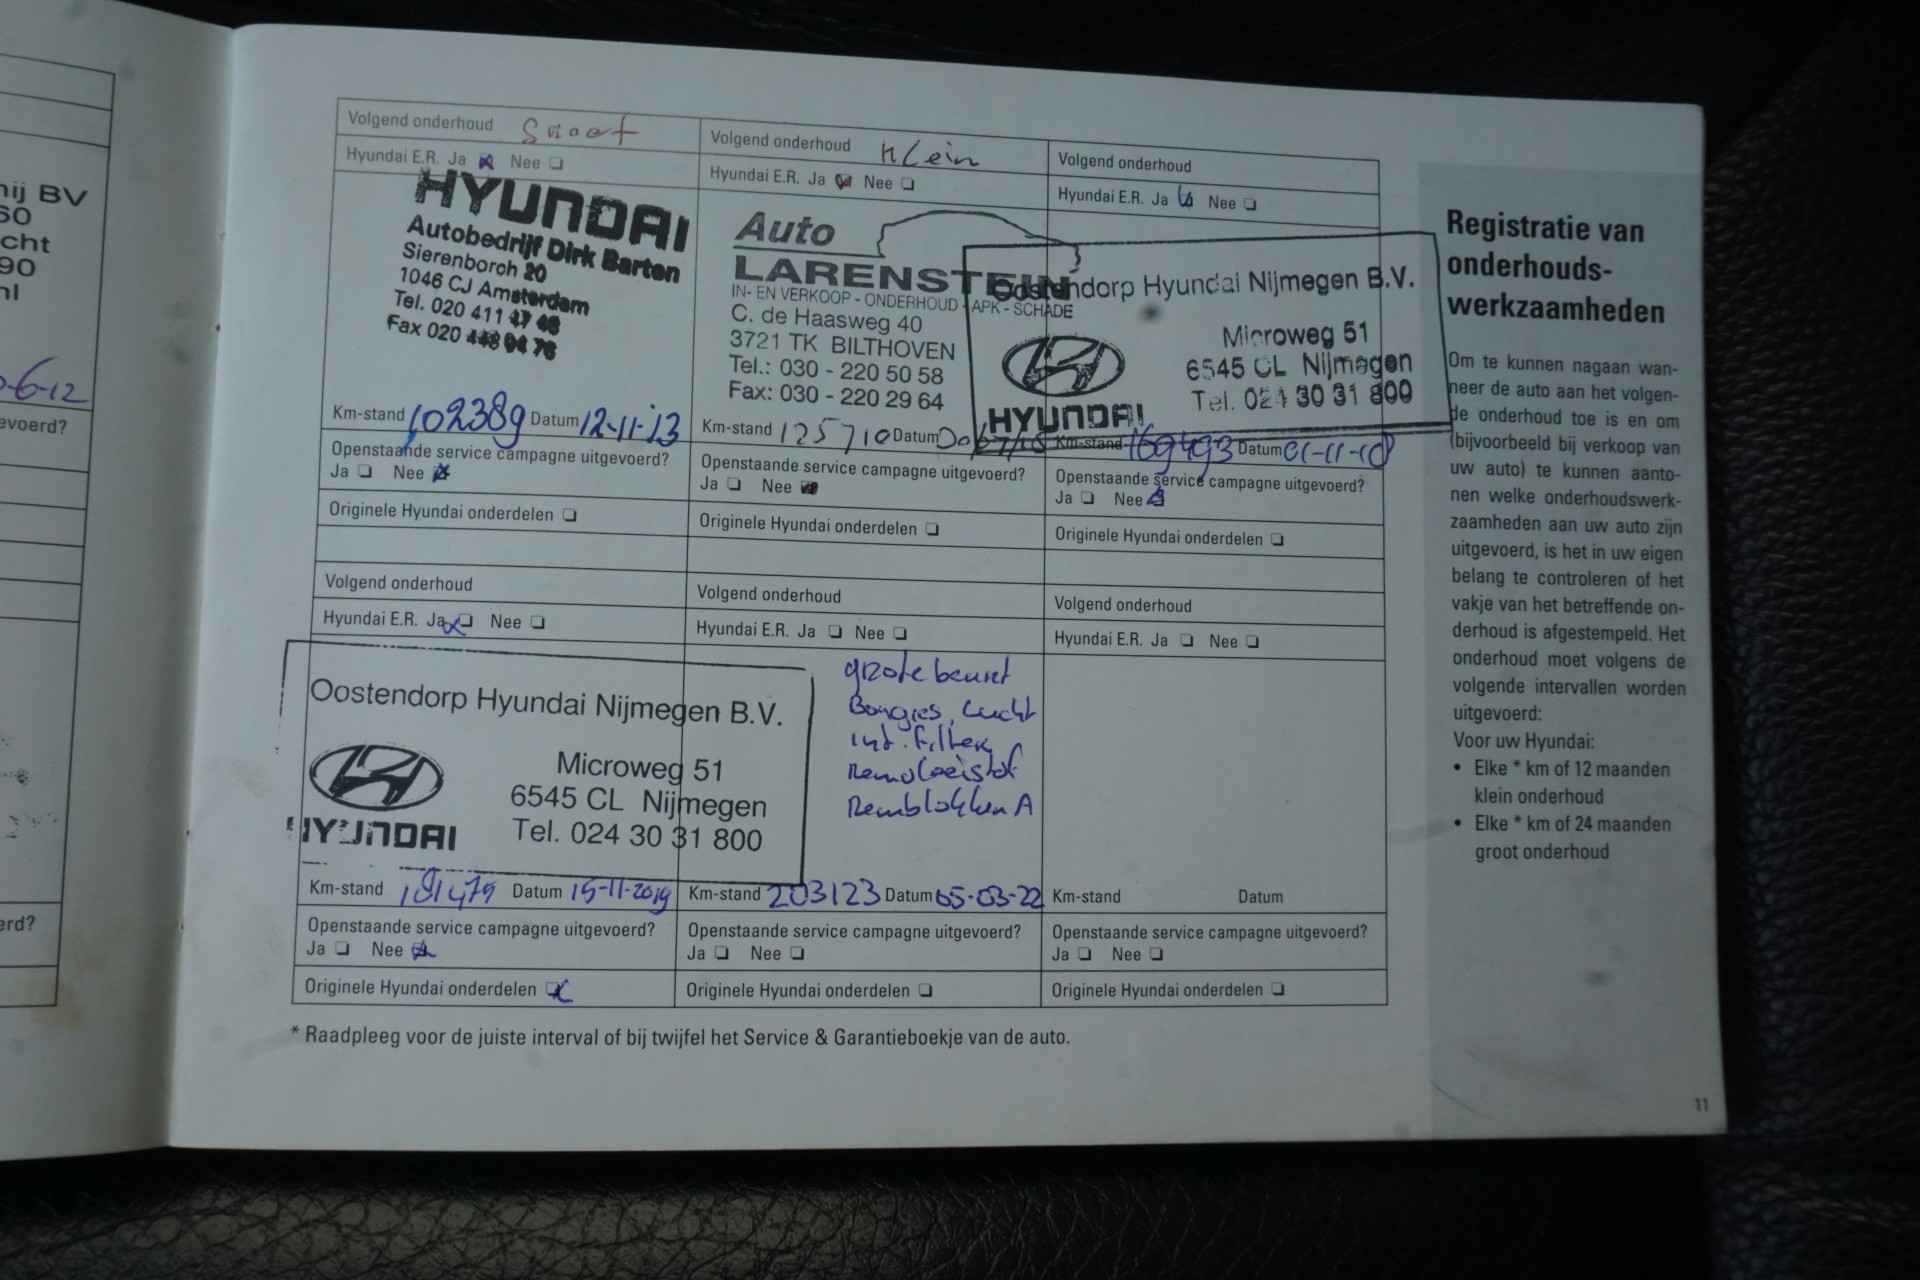 nij BV
60
cht
90
nl
-6-12
evoerd?
erd?
Volgend onderhoud
Hyundai E.R. Ja Nee
HYUNDAI
Autobedrijf Dirk Barten
Sierenborch 20
1046 CJ Amsterdam
Tel. 020 411 47 48
Fax 020 448 04 76
Km-stand 102389 Datum 12-11-'13
Openstaande service campagne uitgevoerd?
Ja Nee
Originele Hyundai onderdelen
Volgend onderhoud Klein
Hyundai E.R. Ja Nee
Auto
LARENSTEIN
IN- EN VERKOOP - ONDERHOUD - APK - SCHADE
C. de Haasweg 40
3721 TK BILTHOVEN
Tel.: 030 - 220 50 58
Fax: 030 - 220 29 64
Km-stand 125710 Datum
Openstaande service campagne uitgevoerd?
Ja Nee
Originele Hyundai onderdelen
Volgend onderhoud
Hyundai E.R. Ja Nee
Oostendorp Hyundai Nijmegen B.V.
Microweg 51
6545 CL Nijmegen
Tel. 024 30 31 800
HYUNDAI
Km-stand 169493 Datum 01-11-18
Openstaande service campagne uitgevoerd?
Ja Nee
Originele Hyundai onderdelen
Volgend onderhoud
Hyundai E.R. Ja Nee
Oostendorp Hyundai Nijmegen B.V.
Microweg 51
6545 CL Nijmegen
Tel. 024 30 31 800
HYUNDAI
Km-stand 181479 Datum 15-11-2019
Openstaande service campagne uitgevoerd?
Ja Nee
Originele Hyundai onderdelen
Volgend onderhoud
Hyundai E.R. Ja Nee
grote beurt
Bougies, Lucht
int. filter
Remvloeistof
Remblokken A
Km-stand 203123 Datum 05-03-22
Openstaande service campagne uitgevoerd?
Ja Nee
Originele Hyundai onderdelen
Volgend onderhoud
Hyundai E.R. Ja Nee
Km-stand Datum
Openstaande service campagne uitgevoerd?
Ja Nee
Originele Hyundai onderdelen
* Raadpleeg voor de juiste interval of bij twijfel het Service & Garantieboekje van de auto.
Registratie van
onderhouds-
werkzaamheden
Om te kunnen nagaan wan-
neer de auto aan het volgen-
de onderhoud toe is en om
(bijvoorbeeld bij verkoop van
uw auto) te kunnen aanto-
nen welke onderhoudswerk-
zaamheden aan uw auto zijn
uitgevoerd, is het in uw eigen
belang te controleren of het
vakje van het betreffende on-
derhoud is afgestempeld. Het
onderhoud moet volgens de
volgende intervallen worden
uitgevoerd:
Voor uw Hyundai:
• Elke * km of 12 maanden
klein onderhoud
• Elke * km of 24 maanden
groot onderhoud
11